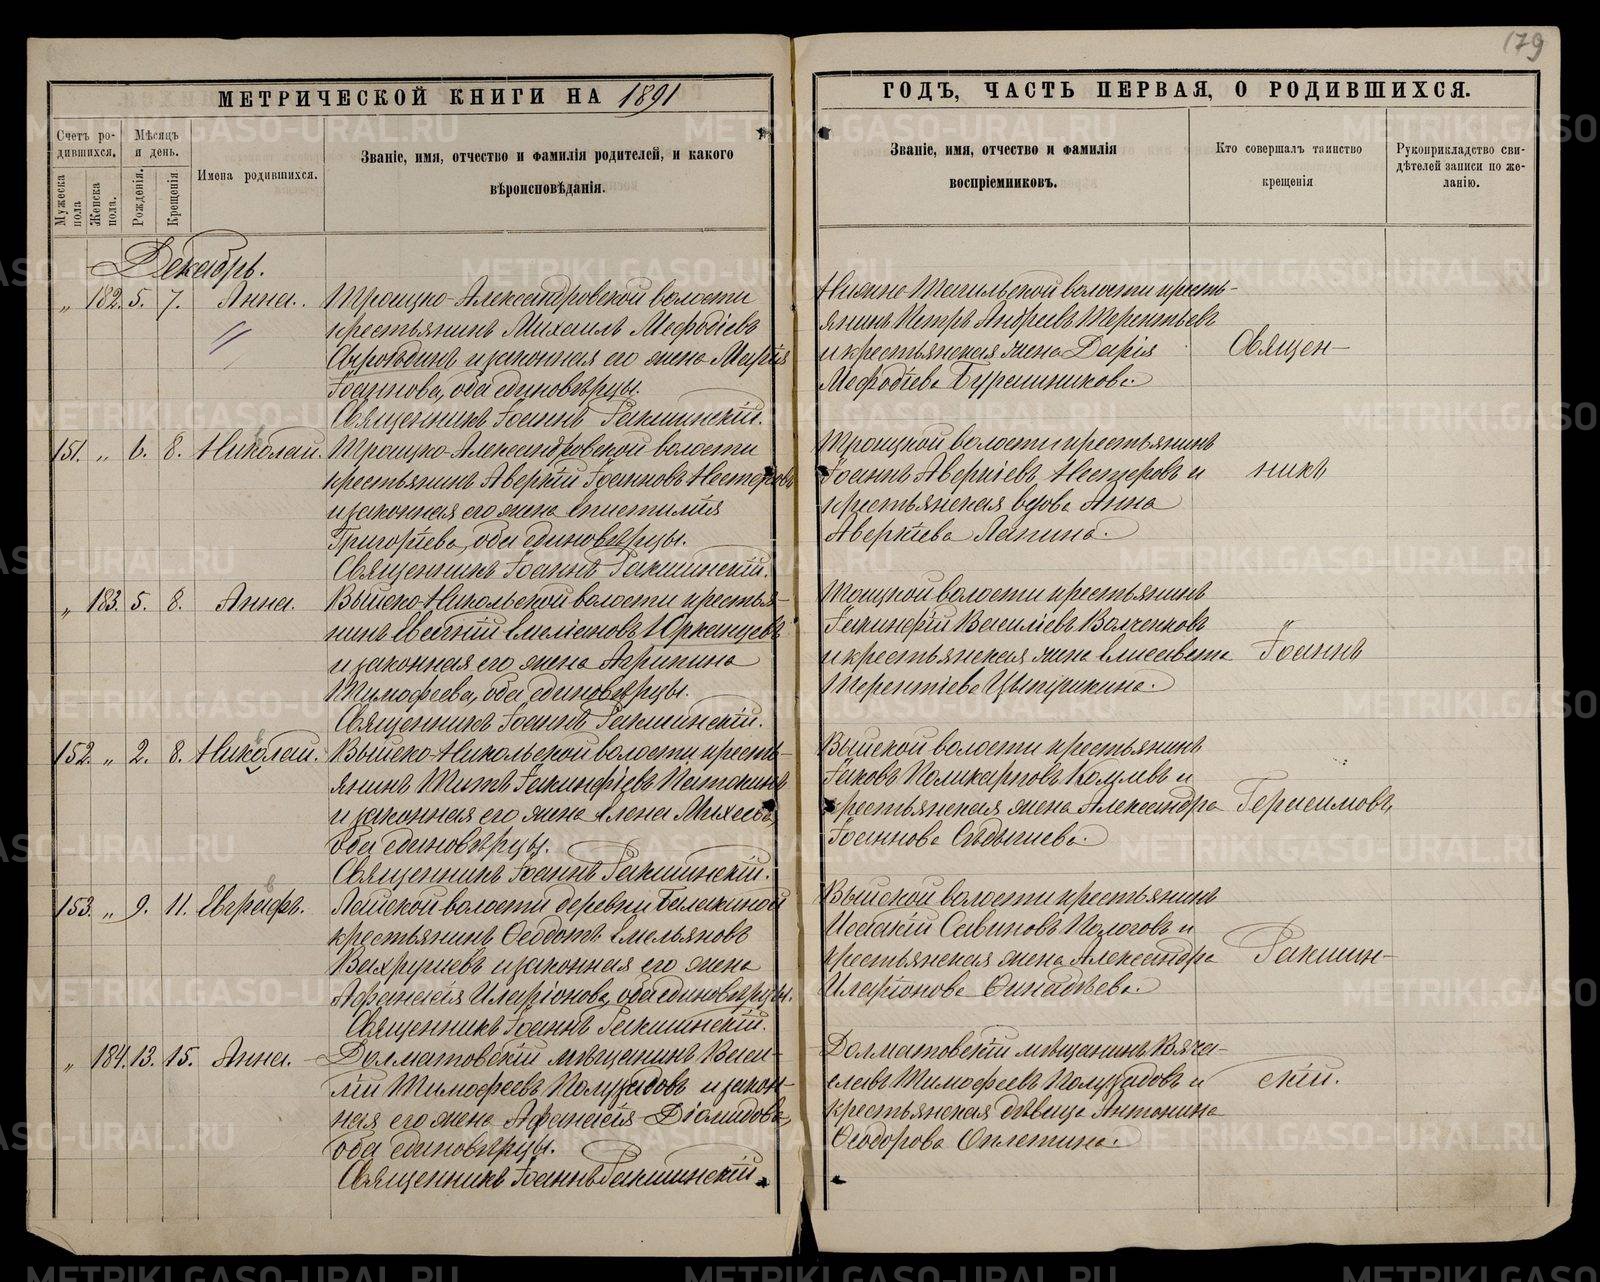 179
МЕТРИЧЕСКОЙ КНИГИ НА 1891
ГОДЪ, ЧАСТЬ ПЕРВАЯ, О РОДИВШИХСЯ.
Счетъ ро-
дившихся.
Мужеска пола
Женска пола.
Мѣсяцъ
и день.
Рожденія.
Крещенія
Имена родившихся.
Званіе, имя, отчество и фамилія родителей, и какого
вѣроисповѣданія.
Званіе, имя, отчество и фамилія
воспріемниковъ.
Кто совершалъ таинство
крещенія
Рукоприкладство сви-
дѣтелей записи по же-
ланію.
Декабрь.
„ 182. 5. 7. Анна. Троицко-Александровской волости
крестьянинъ Михаилъ Мефодіевъ
и законная его жена Марія
Іоаннова, оба единовѣрцы.
Священникъ Іоаннъ Ракшинскій.
Нижне-Тагильской волости кресть-
янинъ Петръ Андреевъ Терентьевъ
и крестьянская жена Дарія
Мефодіева
151. „ 6. 8. Николай. Троицко-Александровской волости
крестьянинъ Аверкій Іоанновъ Нестеровъ
и законная его жена Епистилія
Григоріева, оба единовѣрцы.
Священникъ Іоаннъ Ракшинскій.
Троицкой волости крестьянинъ
Іоаннъ Аверкіевъ Нестеровъ и
крестьянская вдова Анна
Аверкіева Лапина.
„ 183. 5. 8. Анна. Выйско-Никольской волости крестья-
нинъ Евгеній Емеліановъ Юрканцевъ
и законная его жена Агрипина
Тимофеева, оба единовѣрцы.
Священникъ Іоаннъ Ракшинскій.
Тоицкой волости крестьянинъ
Іакинфій Василіевъ Волченковъ
и крестьянская жена Елисавета
Терентіева
152. „ 2. 8. Николай. Выйско-Никольской волости кресть-
янинъ Титъ Іакинфіевъ
и законная его жена Елена Михеева,
оба единовѣрцы.
Священникъ Іоаннъ Ракшинскій.
Выйской волости крестьянинъ
Іаковъ Поликарповъ и
крестьянская жена Александра
Іоаннова Сѣдышева.
153. „ 9. 11. Евграфъ. Лайской волости деревни Балакиной
крестьянинъ Ѳеодотъ Емельяновъ
Вахрушевъ и законная его жена
Афанасія Иларіонова, оба единовѣрцы.
Священникъ Іоаннъ Ракшинскій.
Выйской волости крестьянинъ
Исаакій Савиновъ Пологовъ и
крестьянская жена Александра
Иларіонова
„ 184. 13. 15. Анна. Долматовскій мѣщанинъ Васи-
лій Тимофеевъ Полуздовъ и закон-
ная его жена Афанасія Діомидова,
оба единовѣрцы.
Священникъ Іоаннъ Ракшинскій.
Долматовскій мѣщанинъ Вяче-
славъ Тимофеевъ и
крестьянская дѣвица Антонина
Ѳеодорова
Священ-
никъ
Іоаннъ
Герасимовъ
Ракшин-
скій.
METRIKI.GASO-URAL.RU